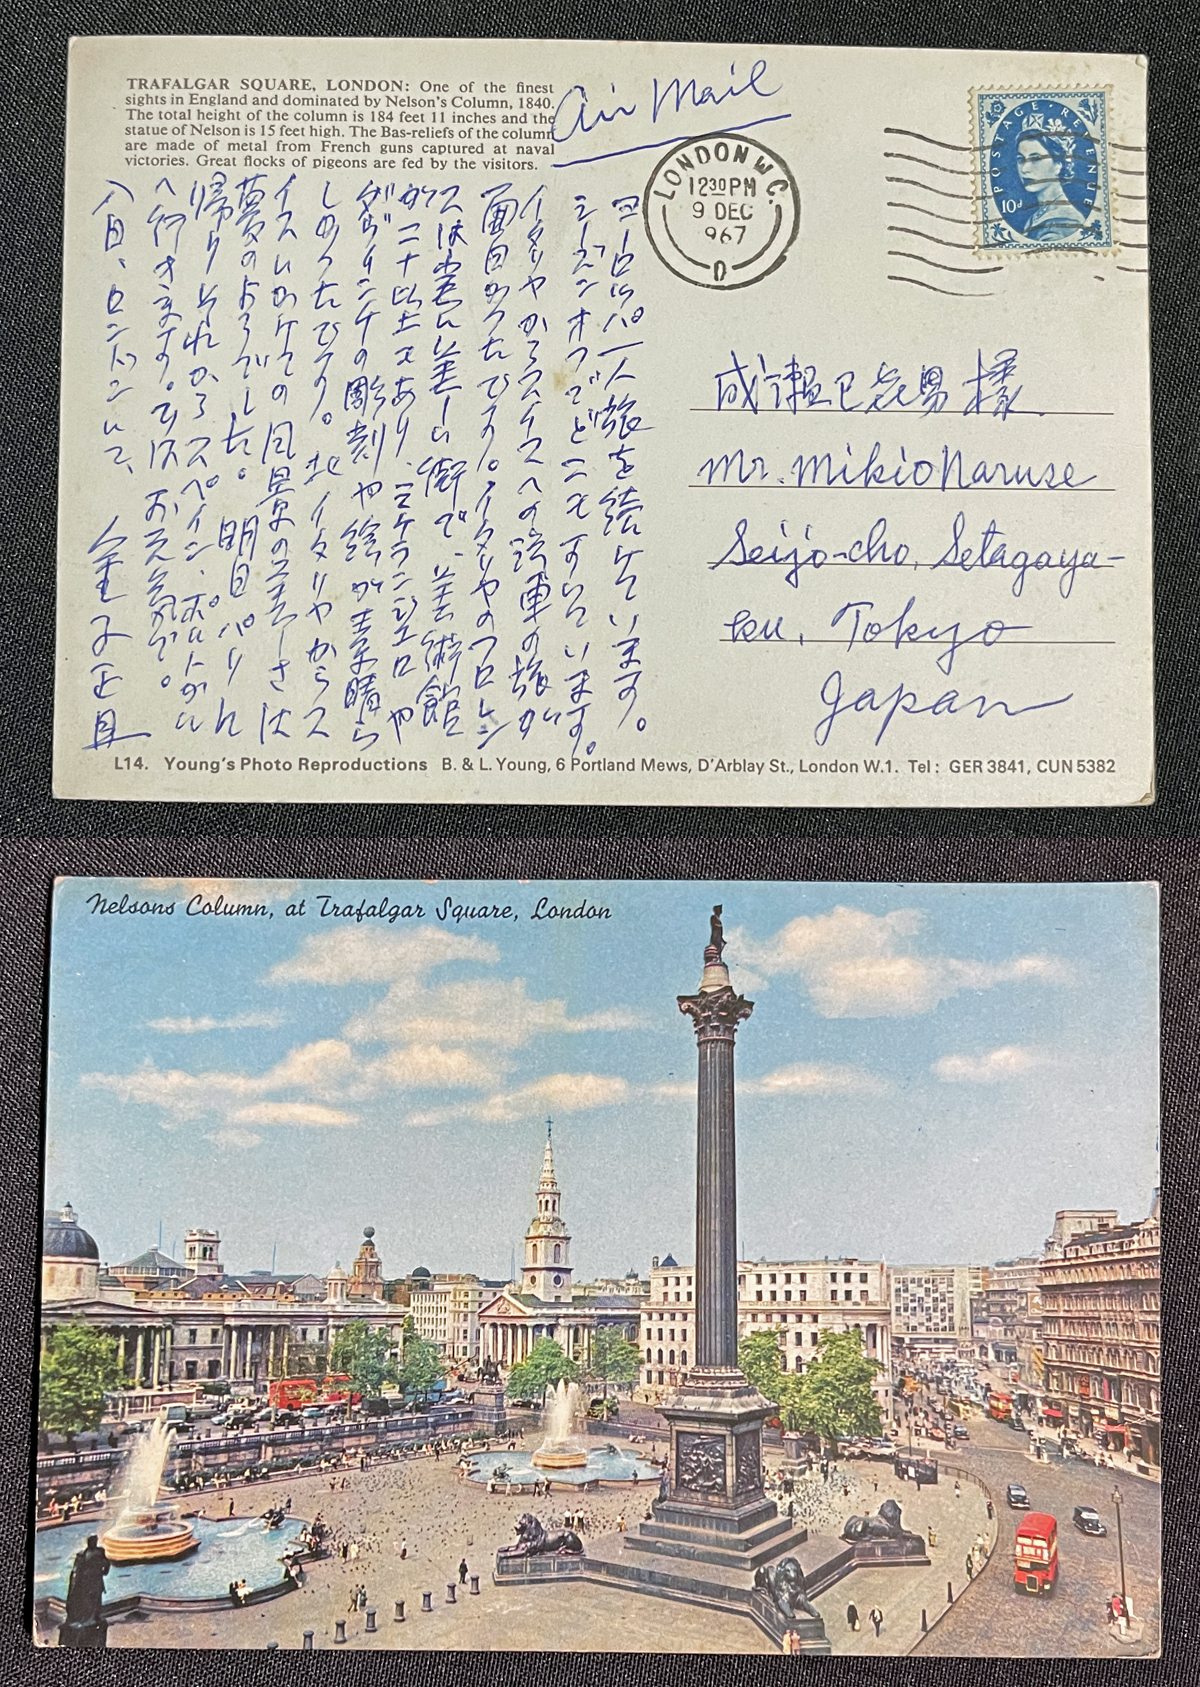 TRAFALGAR SQUARE, LONDON: One of the finest
sights in England and dominated by Nelson's Column, 1840.
The total height of the column is 184 feet 11 inches and the
statue of Nelson is 15 feet high. The Bas-reliefs of the column
are made of metal from French guns captured at naval
victories. Great flocks of pigeons are fed by the visitors.
Air Mail
LONDON W.C.
12 30 PM
9 DEC
967
D
POSTAGE REVENUE
10d
ヨーロッパ一人旅を続けています。
シーズンオフでどこもすいています。
イタリヤからスイスへの汽車の旅が
面白かったです。イタリヤのフロレン
スは実に美しい街で、美術館
が二十以上もあり、ミケランジェロや
ダヴィンチの彫刻や絵が素晴ら
しかったです。北イタリヤからス
イスにかけての風景の美しさは
夢のようでした。明日パリに
帰りそれからスペイン、ポルトガル
へ行きます。ではお元気で。
八日、ロンドンにて、 金子正且
成瀬巳喜男様
Mr. Mikio Naruse
Seijo-cho, Setagaya-
ku, Tokyo
Japan
L14. Young's Photo Reproductions B. & L. Young, 6 Portland Mews, D'Arblay St., London W.1. Tel: GER 3841, CUN 5382
Nelsons Column, at Trafalgar Square, London